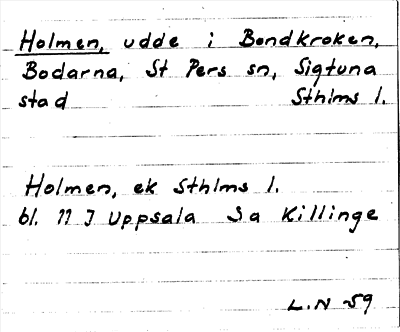 Holmen, udde i Bondkroken,
Bodarna, St Pers sn, Sigtuna
stad Sthlms l.
Holmen, ek Sthlms l.
bl. 11 I Uppsala Sa Killinge
L.N 59